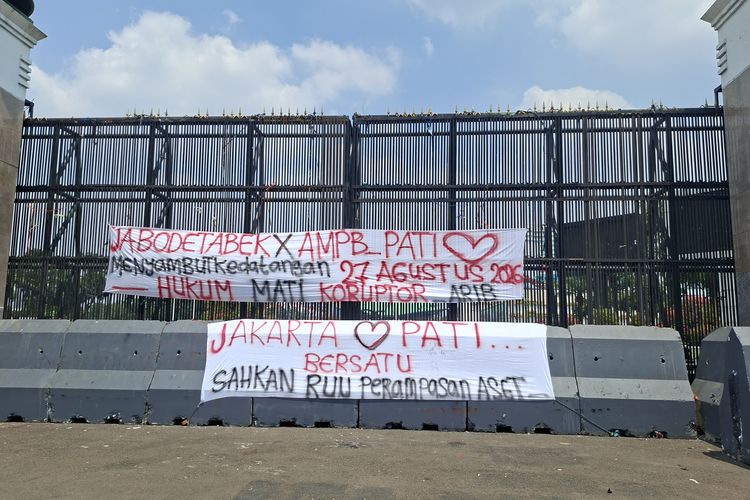 JABODETABEK X AMPB_PATI
MENYAMBUT KEDATANGAN 27 AGUSTUS 2026
HUKUM MATI KORUPTOR ARIB
JAKARTA PATI...
BERSATU
SAHKAN RUU PERAMPASAN ASET